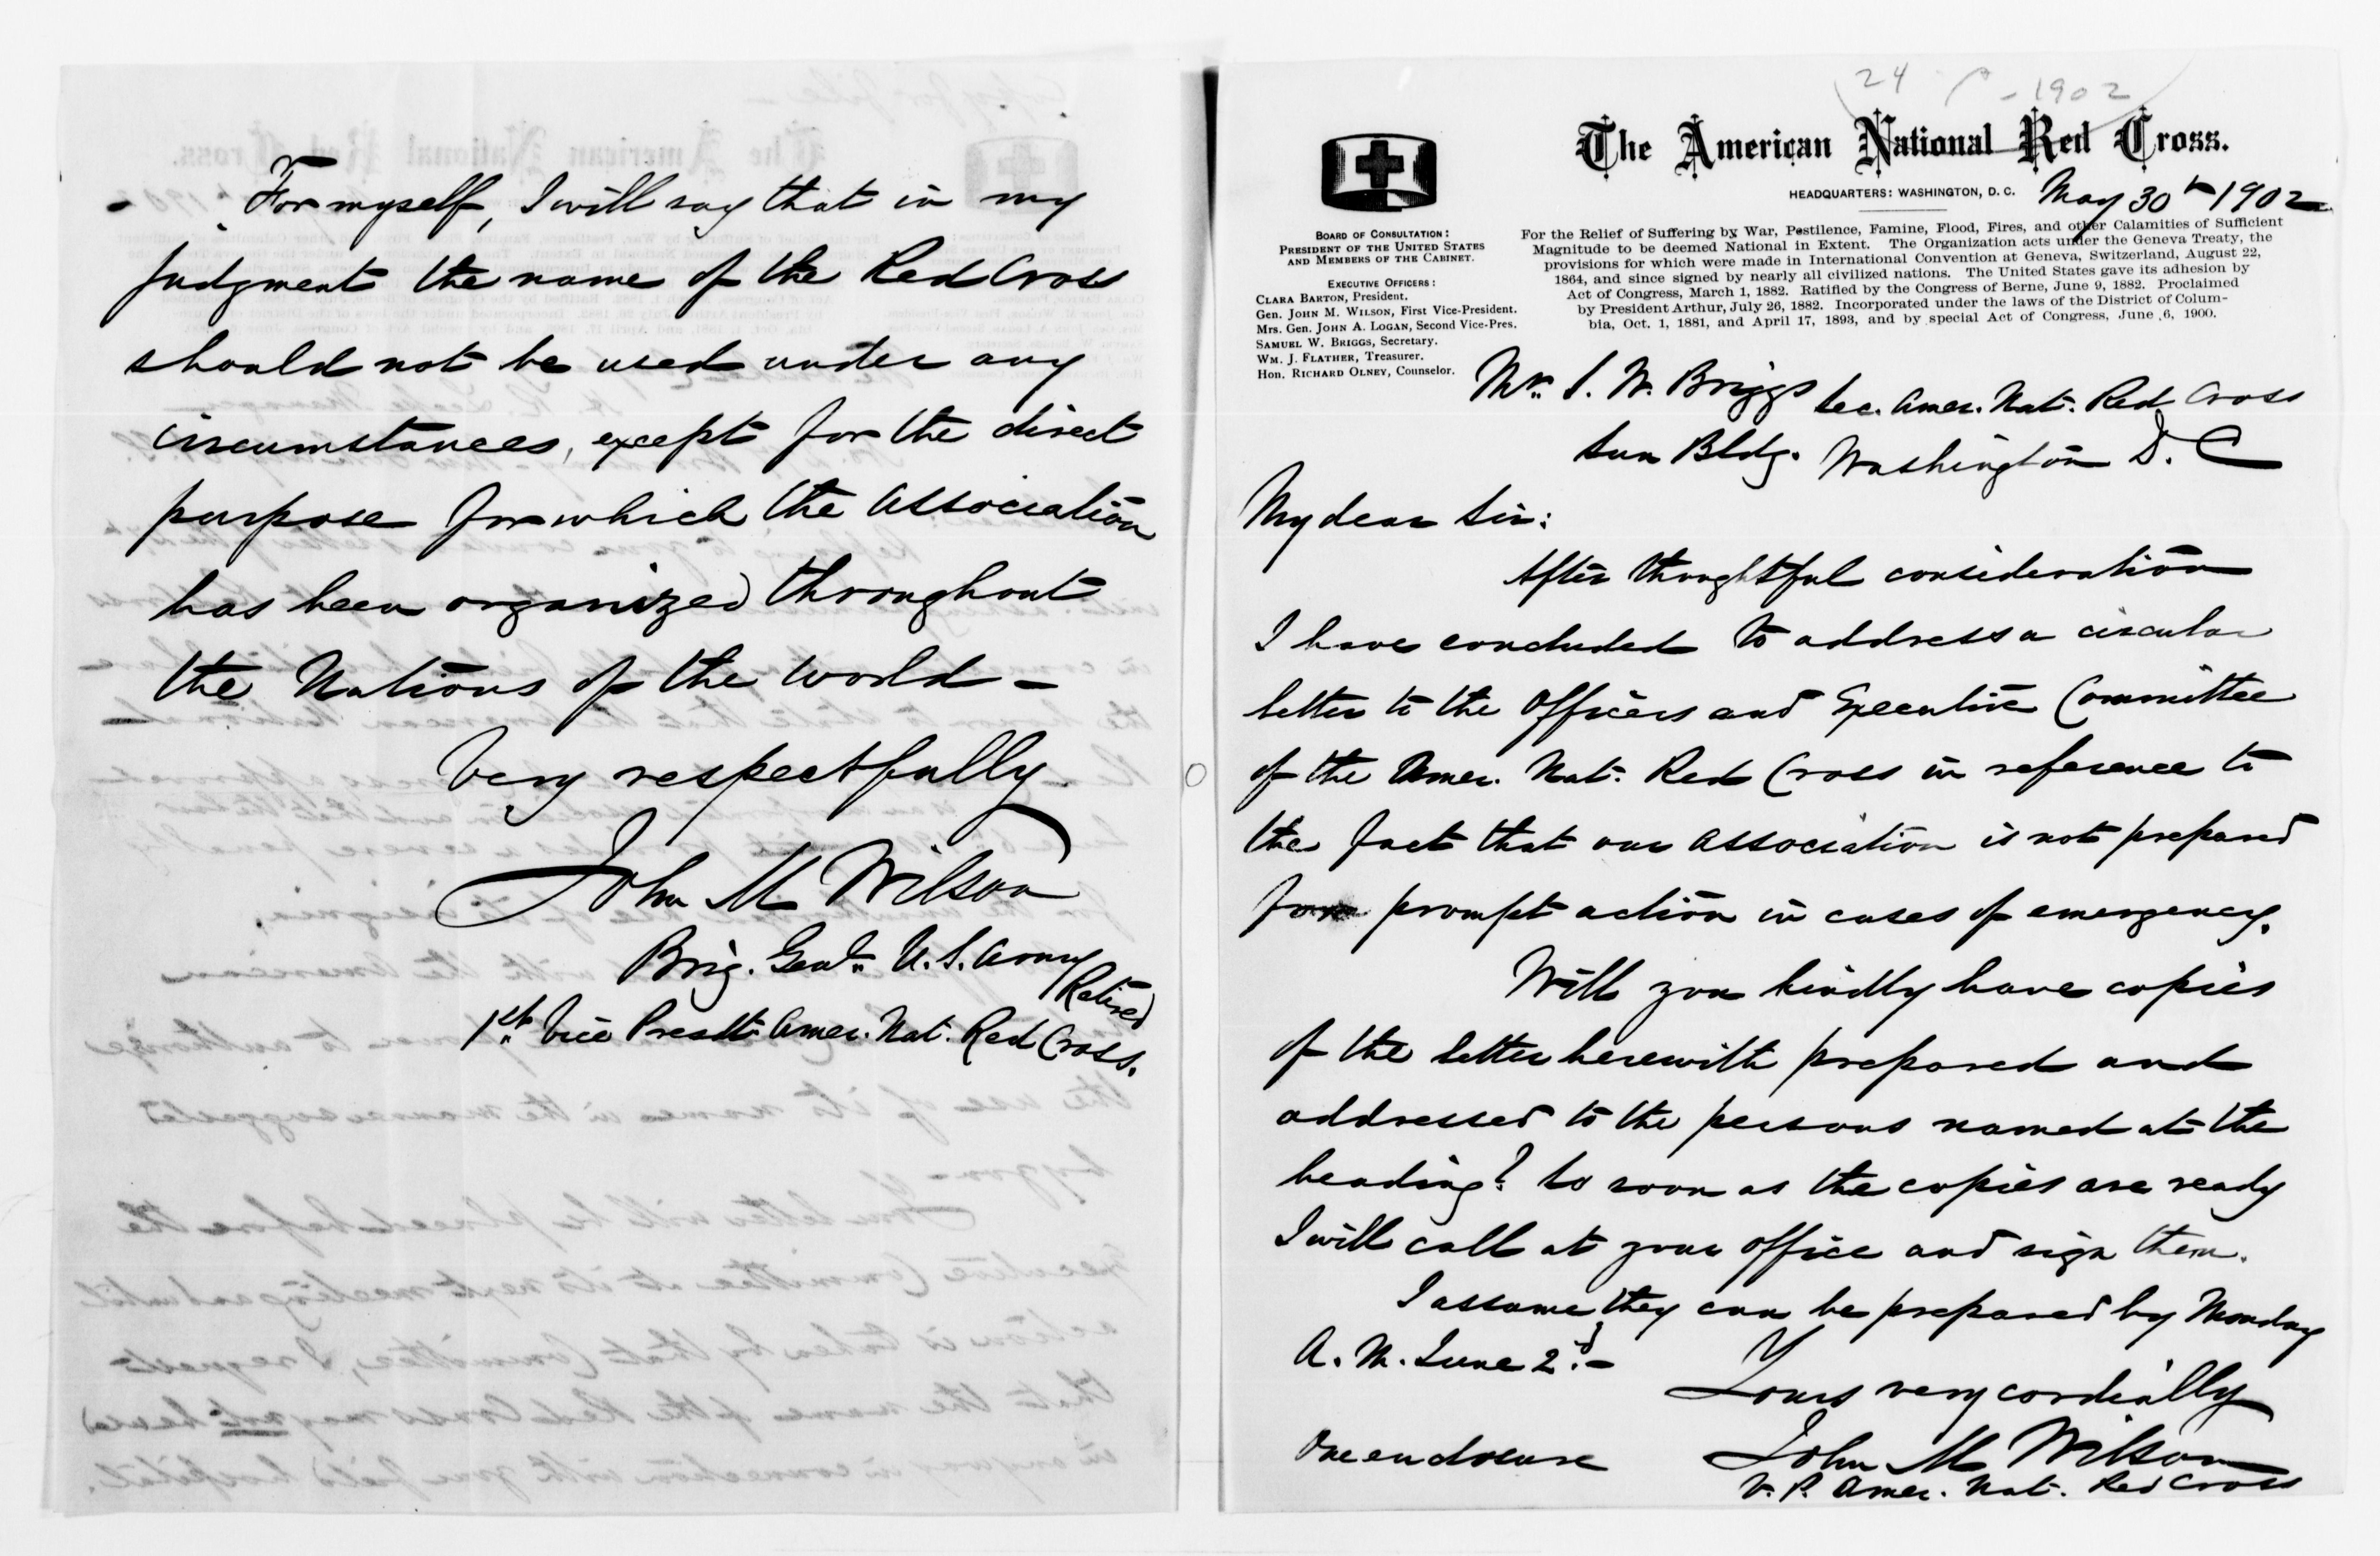 For myself, I will say that in my
judgment the name of the Red Cross
should not be used under any
circumstances, except for the direct
purpose for which the Association
has been organized throughout
the Nations of the World -
Very respectfully
John M Wilson
Brig. Genl. U.S. Army
Retired
1st Vice Presdt. Amer. Nat. Red Cross.
24 - 1902
The American National Red Cross.
HEADQUARTERS: WASHINGTON, D. C.
May 30th 1902
BOARD OF CONSULTATION:
PRESIDENT OF THE UNITED STATES
AND MEMBERS OF THE CABINET.
EXECUTIVE OFFICERS:
CLARA BARTON, President.
Gen. JOHN M. WILSON, First Vice-President.
Mrs. Gen. JOHN A. LOGAN, Second Vice-Pres.
SAMUEL W. BRIGGS, Secretary.
WM. J. FLATHER, Treasurer.
Hon. RICHARD OLNEY, Counselor.
For the Relief of Suffering by War, Pestilence, Famine, Flood, Fires, and other Calamities of Sufficient
Magnitude to be deemed National in Extent. The Organization acts under the Geneva Treaty, the
provisions for which were made in International Convention at Geneva, Switzerland, August 22,
1864, and since signed by nearly all civilized nations. The United States gave its adhesion by
Act of Congress, March 1, 1882. Ratified by the Congress of Berne, June 9, 1882. Proclaimed
by President Arthur, July 26, 1882. Incorporated under the laws of the District of Colum-
bia, Oct. 1, 1881, and April 17, 1893, and by special Act of Congress, June 6, 1900.
Mr. S. W. Briggs Sec. Amer. Nat. Red Cross
Sun Bldg. Washington D. C
My dear Sir:
After thoughtful consideration
I have concluded to address a circular
letter to the Officers and Executive Committee
of the Amer. Nat. Red Cross in reference to
the fact that our Association is not prepared
for prompt action in cases of emergency.
Will you kindly have copies
of the letter herewith prepared and
addressed to the persons named at the
heading? So soon as the copies are ready
I will call at your office and sign them.
I assume they can be prepared by Monday
A. M. June 2d. -
Yours very cordially
John M Wilson
V. P. Amer. Nat. Red Cross
One enclosure